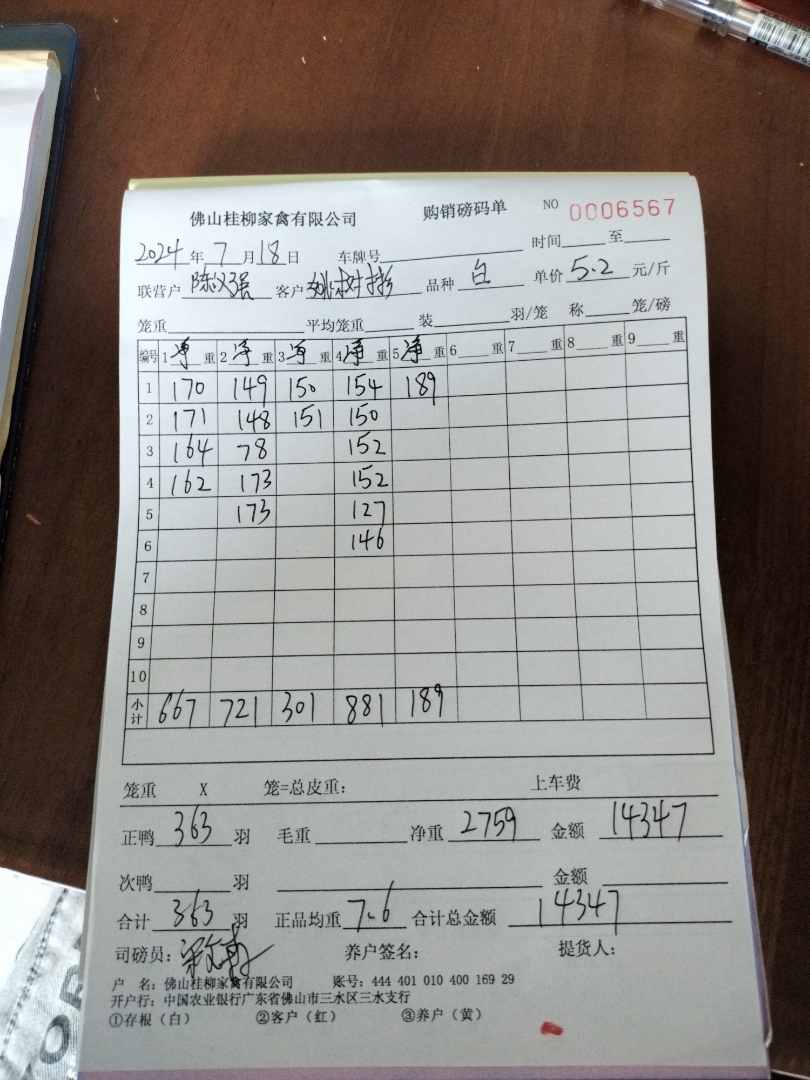 佛山桂柳家禽有限公司 购销磅码单 NO 0006567
2024年7月18日 车牌号 时间 至
联营户 陈汉强 客户 姚树彬 品种 白 单价 5.2 元/斤
笼重 平均笼重 装 羽/笼 称 笼/磅
编号 1净重 2净重 3净重 4净重 5净重 6 重 7 重 8 重 9 重
1 170 149 150 154 189
2 171 148 151 150
3 164 78 152
4 162 173 152
5 173 127
6 146
7
8
9
10
小计 667 721 301 881 189
笼重 X 笼=总皮重: 上车费
正鸭 363 羽 毛重 净重 2759 金额 14347
次鸭 羽 金额
合计 363 羽 正品均重 7.6 合计总金额 14347
司磅员: 养户签名: 提货人:
户 名: 佛山桂柳家禽有限公司 账号: 444 401 010 400 169 29
开户行: 中国农业银行广东省佛山市三水区三水支行
①存根（白） ②客户（红） ③养户（黄）